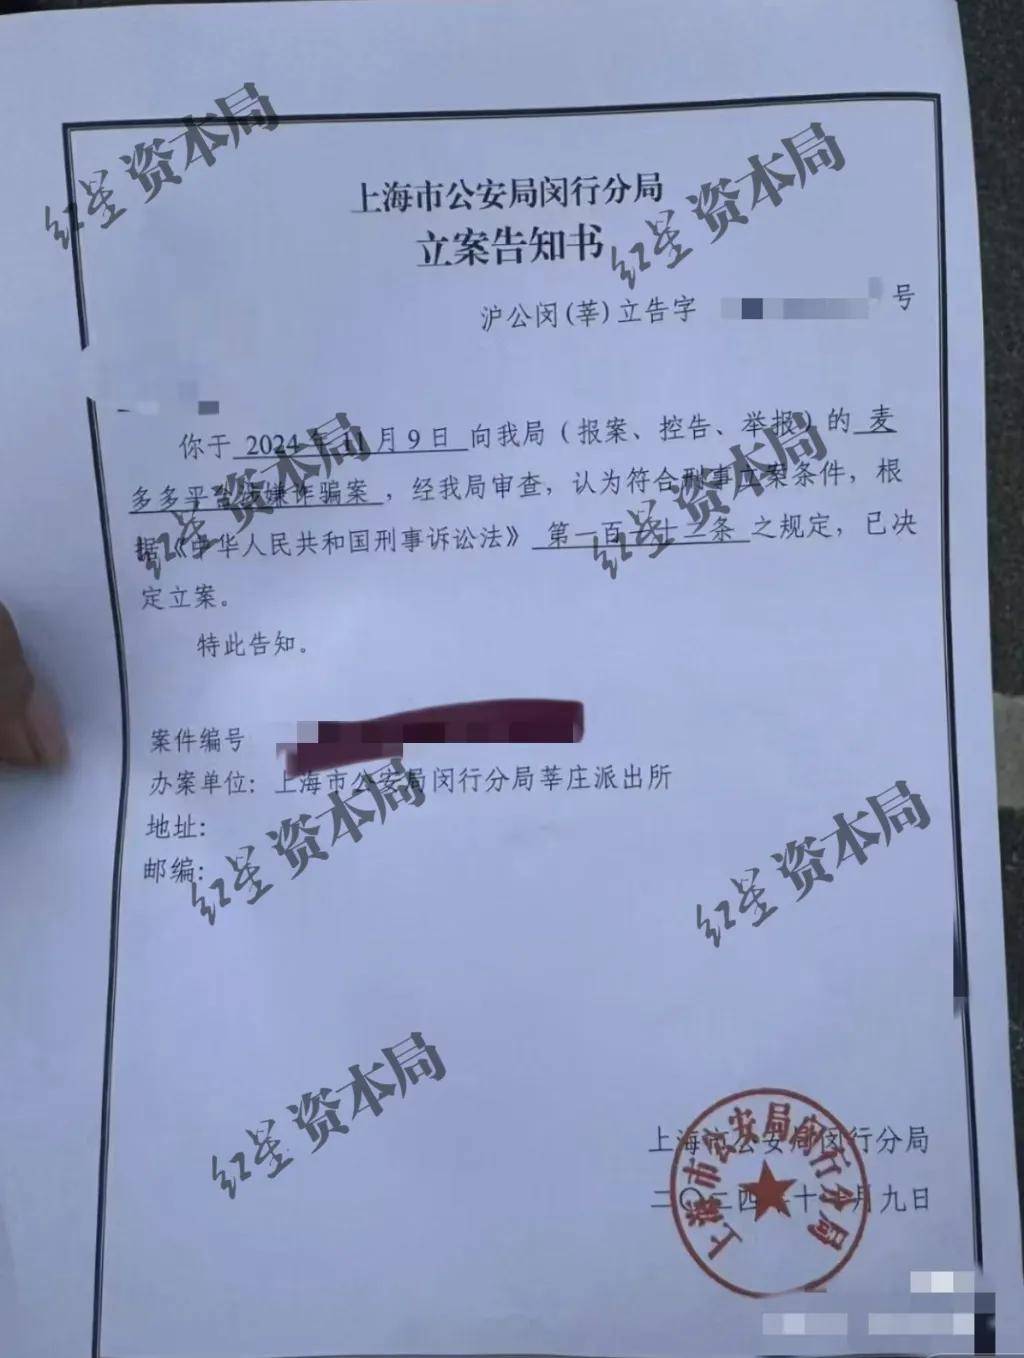 上海市公安局闵行分局
立案告知书
沪公闵(莘)立告字 号
你于 2024年11月9日 向我局（报案、控告、举报）的 麦
多多平台涉嫌诈骗案，经我局审查，认为符合刑事立案条件，根
据《中华人民共和国刑事诉讼法》 第一百一十二条 之规定，已决
定立案。
特此告知。
案件编号
办案单位：上海市公安局闵行分局莘庄派出所
地址：
邮编：
上海市公安局闵行分局
二〇二四年十 月九日
上海市公安局闵行分局
红星资本局
红星资本局
红星资本局
红星资本局
红星资本局
红星资本局
红星资本局